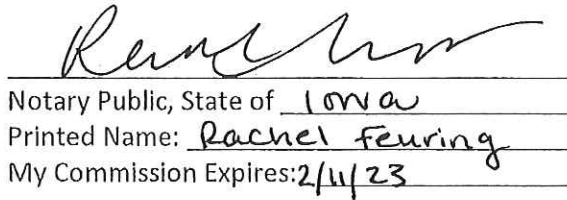 Notary Public, State of Iowa
Printed Name: Rachel Feuring
My Commission Expires: 2/11/23